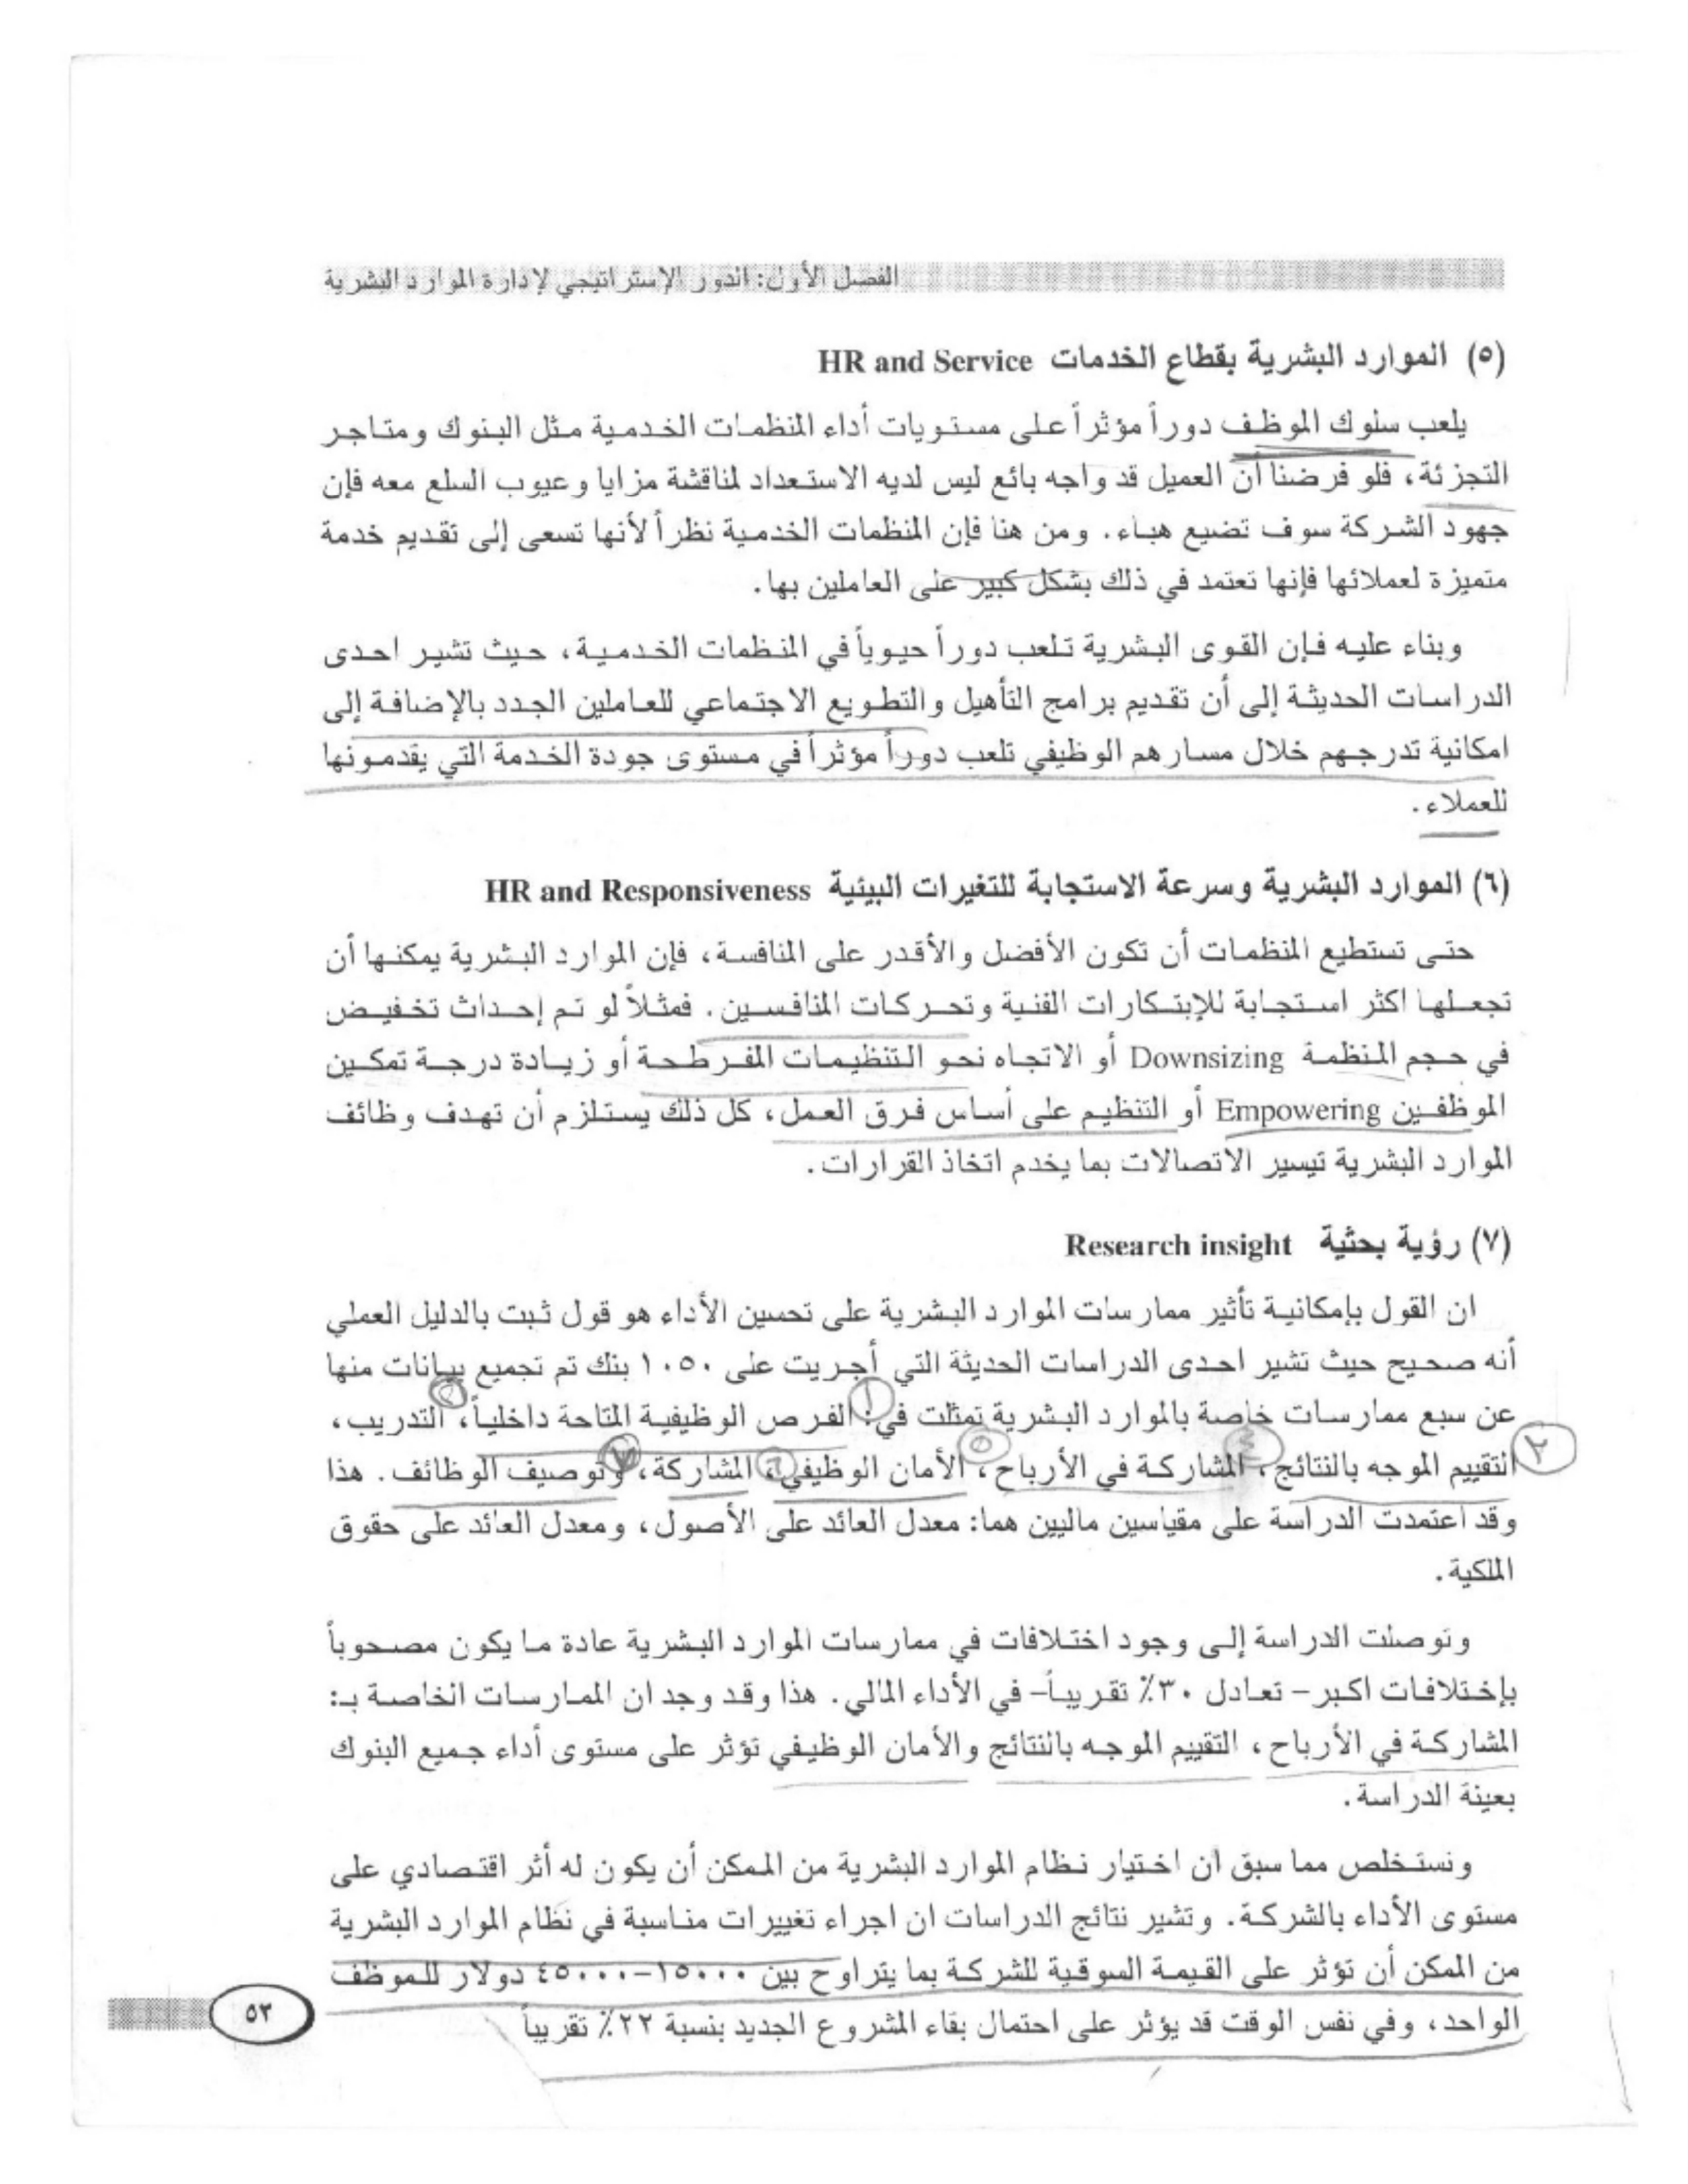 الفصل الأول: الدور الإستراتيجي لإدارة الموارد البشرية
(٥) الموارد البشرية بقطاع الخدمات HR and Service
يلعب سلوك الموظف دوراً مؤثراً على مستويات أداء المنظمات الخدمية مثل البنوك ومتاجر
التجزئة، فلو فرضنا أن العميل قد واجه بائع ليس لديه الاستعداد لمناقشة مزايا وعيوب السلع معه فإن
جهود الشركة سوف تضيع هباء. ومن هنا فإن المنظمات الخدمية نظراً لأنها تسعى إلى تقديم خدمة
متميزة لعملائها فإنها تعتمد في ذلك بشكل كبير على العاملين بها.
وبناء عليه فإن القوى البشرية تلعب دوراً حيوياً في المنظمات الخدمية، حيث تشير احدى
الدراسات الحديثة إلى أن تقديم برامج التأهيل والتطويع الاجتماعي للعاملين الجدد بالإضافة إلى
امكانية تدرجهم خلال مسارهم الوظيفي تلعب دوراً مؤثراً في مستوى جودة الخدمة التي يقدمونها
للعملاء.
(٦) الموارد البشرية وسرعة الاستجابة للتغيرات البيئية HR and Responsiveness
حتى تستطيع المنظمات أن تكون الأفضل والأقدر على المنافسة، فإن الموارد البشرية يمكنها أن
تجعلها اكثر استجابة للإبتكارات الفنية وتحركات المنافسين. فمثلاً لو تم إحداث تخفيض
في حجم المنظمة Downsizing أو الاتجاه نحو التنظيمات المفرطحة أو زيادة درجة تمكين
الموظفين Empowering أو التنظيم على أساس فرق العمل، كل ذلك يستلزم أن تهدف وظائف
الموارد البشرية تيسير الاتصالات بما يخدم اتخاذ القرارات.
(٧) رؤية بحثية Research insight
ان القول بإمكانية تأثير ممارسات الموارد البشرية على تحسين الأداء هو قول ثبت بالدليل العملي
أنه صحيح حيث تشير احدى الدراسات الحديثة التي أجريت على ١٠٥٠ بنك تم تجميع بيانات منها
عن سبع ممارسات خاصة بالموارد البشرية تمثلت في: ١ الفرص الوظيفية المتاحة داخلياً، التدريب،
٢ التقييم الموجه بالنتائج، ٤ المشاركة في الأرباح، ٥ الأمان الوظيفي، ٦ المشاركة، ٧ وتوصيف الوظائف. هذا
وقد اعتمدت الدراسة على مقياسين ماليين هما: معدل العائد على الأصول، ومعدل العائد على حقوق
الملكية.
وتوصلت الدراسة إلى وجود اختلافات في ممارسات الموارد البشرية عادة ما يكون مصحوباً
بإختلافات اكبر- تعادل ٣٠٪ تقريباً- في الأداء المالي. هذا وقد وجد ان الممارسات الخاصة بـ:
المشاركة في الأرباح، التقييم الموجه بالنتائج والأمان الوظيفي تؤثر على مستوى أداء جميع البنوك
بعينة الدراسة.
ونستخلص مما سبق ان اختيار نظام الموارد البشرية من الممكن أن يكون له أثر اقتصادي على
مستوى الأداء بالشركة. وتشير نتائج الدراسات ان اجراء تغييرات مناسبة في نظام الموارد البشرية
من الممكن أن تؤثر على القيمة السوقية للشركة بما يتراوح بين ١٥٠٠٠-٤٥٠٠٠ دولار للموظف
الواحد، وفي نفس الوقت قد يؤثر على احتمال بقاء المشروع الجديد بنسبة ٢٢٪ تقريباً
٥٣